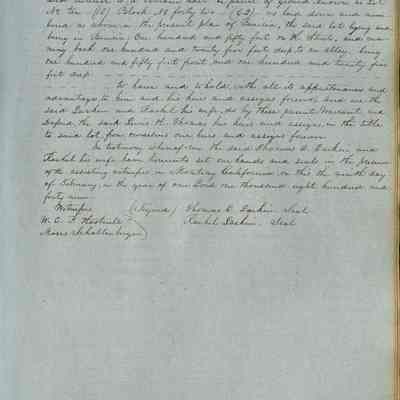 and interest to a certain lot or parcel of ground known as Lot
No Ten (10) Block No forty two (42) as laid down and num
bered as shown in the present plan of Benicia, the said lot lying and
being in Benicia One hundred and fifty feet on H. Street, and run
ning back one hundred and twenty five feet deep to an alley, being
one hundred and fifty feet front and one hundred and twenty five
feet deep
to have and to hold with all its appurtenances and
advantages, to him and his heirs and assigns forever, and we the
said Larkin and Rachel his wife, do by these presents Warrant and
Defend the said Lewis H. Thomas his heirs and assigns, in the title
to said lot, from ourselves our heirs and assigns forever
In testimony whereof we the said Thomas O. Larkin and
Rachel his wife have hereunto set our hands and seals in the presence
of the assisting witnesses in Monterey California on this the ninth day
of February in the year of our Lord one thousand eight hundred and
forty nine
Witnesses (Signed) Thomas O. Larkin Seal
W. C. F. Rachel Larkin Seal
Moses Schallenberger